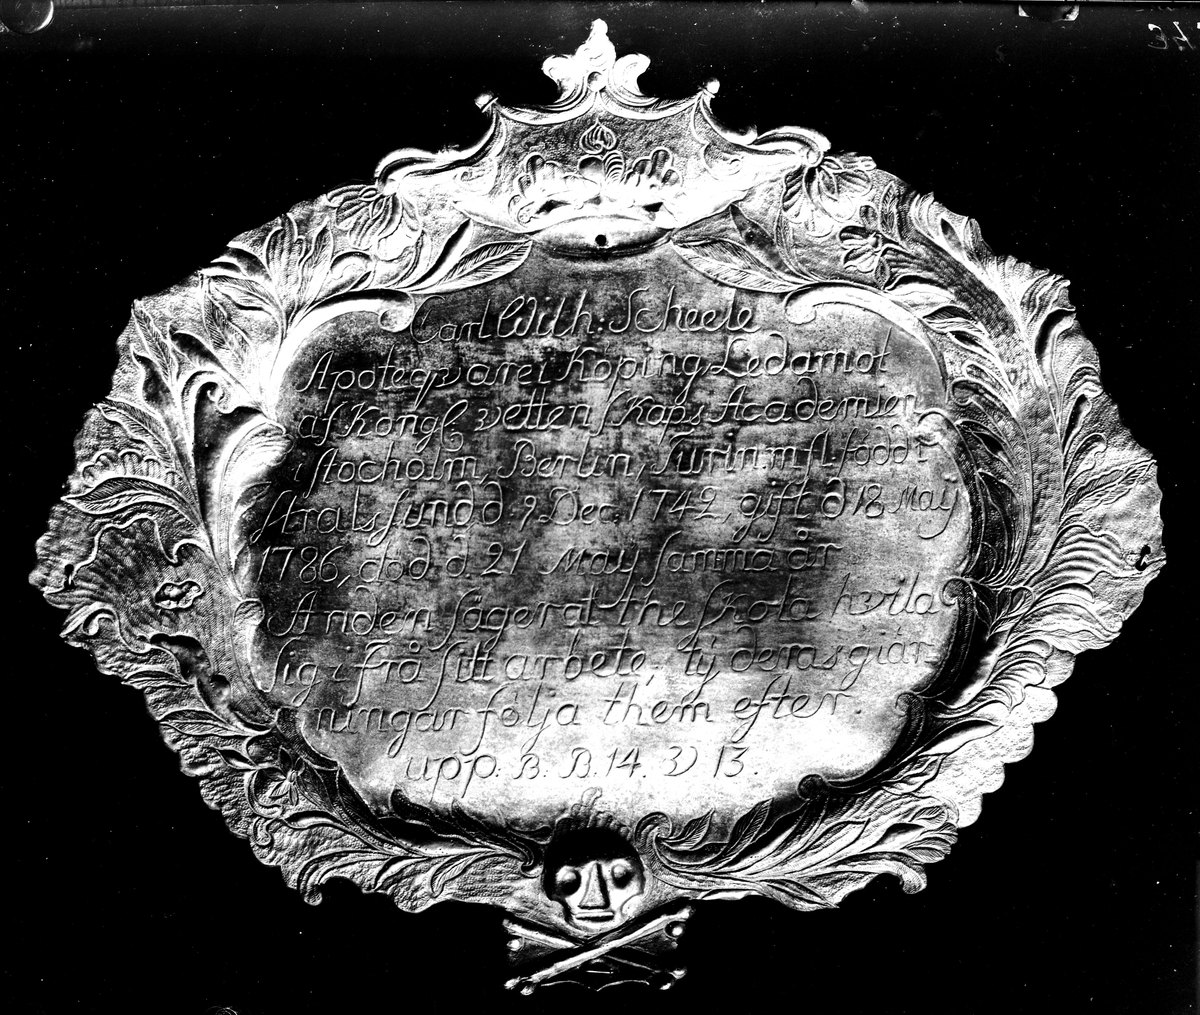 Carl Wilh: Scheele
Apoteqvare i Köping Ledamot
af Kongl: vettenskaps Academien
i stocholm, Berlin, Turin m fl född i
stralsund d 9 Dec. 1742, gift d 18 Maÿ
1786, död d 21 Maÿ samma år
Anden säger at the skola hvila
sig ifrå sitt arbete, tÿ deras giär
ningar följa them efter.
upp. B. B. 14. v 13.